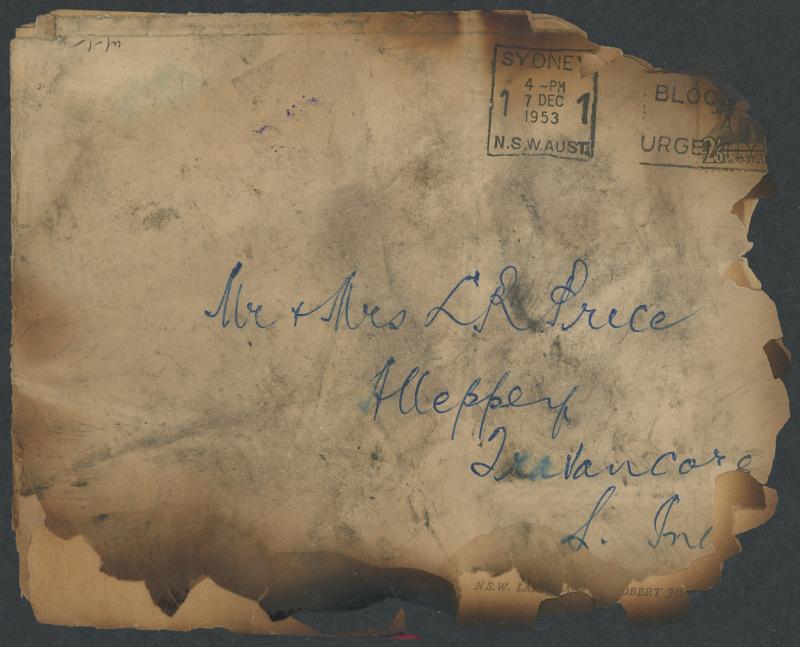 SYDNEY
4 -PM
7 DEC
1953
1 1
N.S.W. AUST.
BLOO
A
URGE
2/6
Mr & Mrs L R Price
Alleppey
Travancore
S. Ind
N.S.W. LA OBERT JO